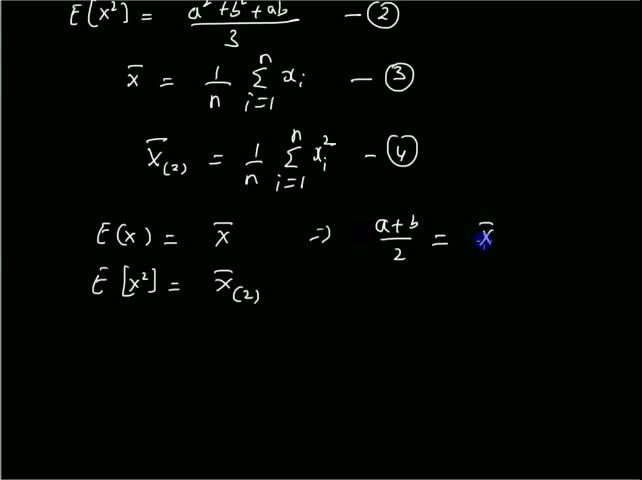 E[x²] = a²+b²+ab / 3 — ②
x̄ = 1/n Σ_{i=1}^{n} x_i — ③
x̄₍₂₎ = 1/n Σ_{i=1}^{n} x_i² — ④
E(x) = x̄ ⇒ a+b / 2 = x̄
E[x²] = x̄₍₂₎